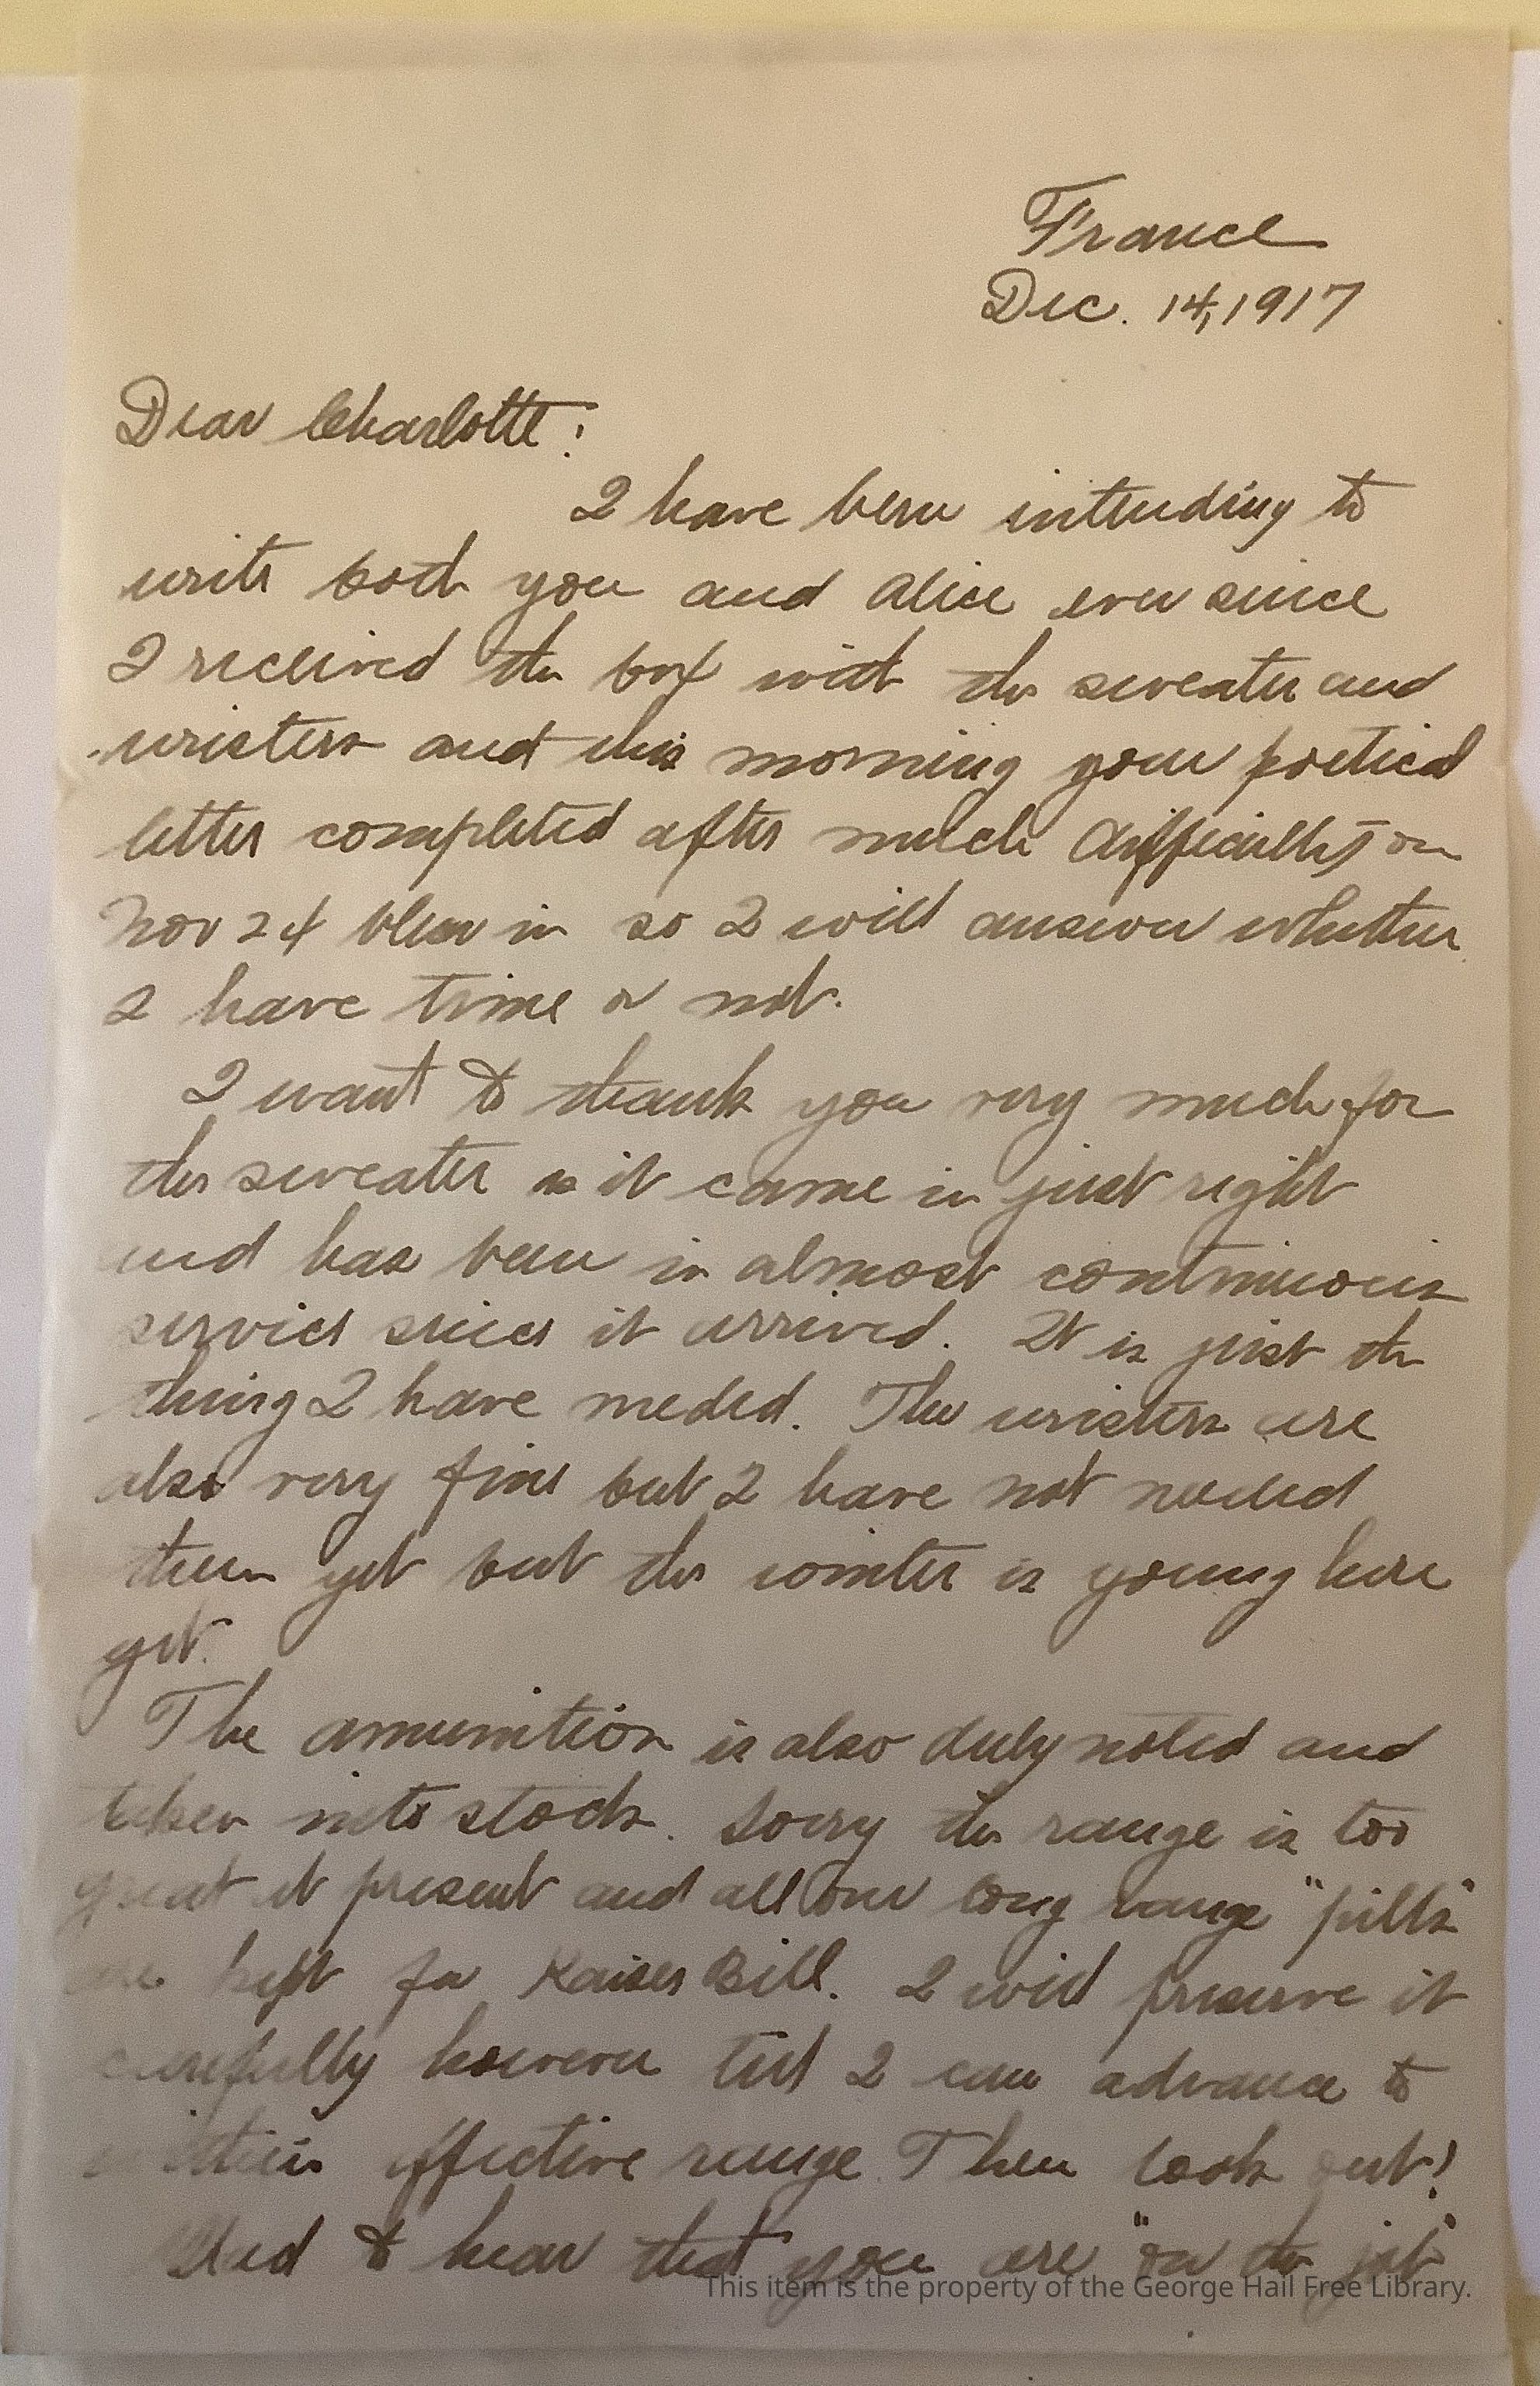 France
Dec. 14, 1917
Dear Charlotte:
I have been intending to
write both you and Alice ever since
I received the box with the sweater and
wristers and this morning your poetical
letter completed after much difficulty on
Nov 24 blew in so I will answer whether
I have time or not.
I want to thank you very much for
the sweater as it came in just right
and has been in almost continuous
service since it arrived. It is just the
thing I have needed. The wristers are
also very fine but I have not needed
them yet but the winter is young here
yet.
The amunition is also duly noted and
taken into stock. Sorry the range is too
great at present and all our long range "pills"
are kept for Kaiser Bill. I will preserve it
carefully however till I can advance to
within effective range. Then look out!
Glad to hear that you are "on the job"
This item is the property of the George Hail Free Library.